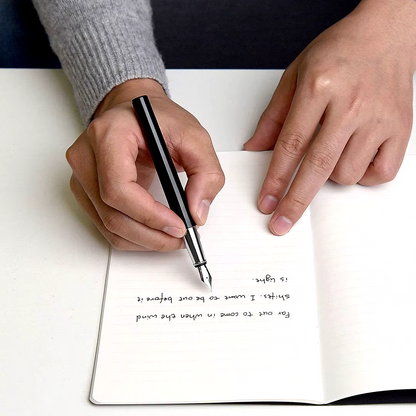 far out to come in when the wind
shifts. I want to be out before it
is light.